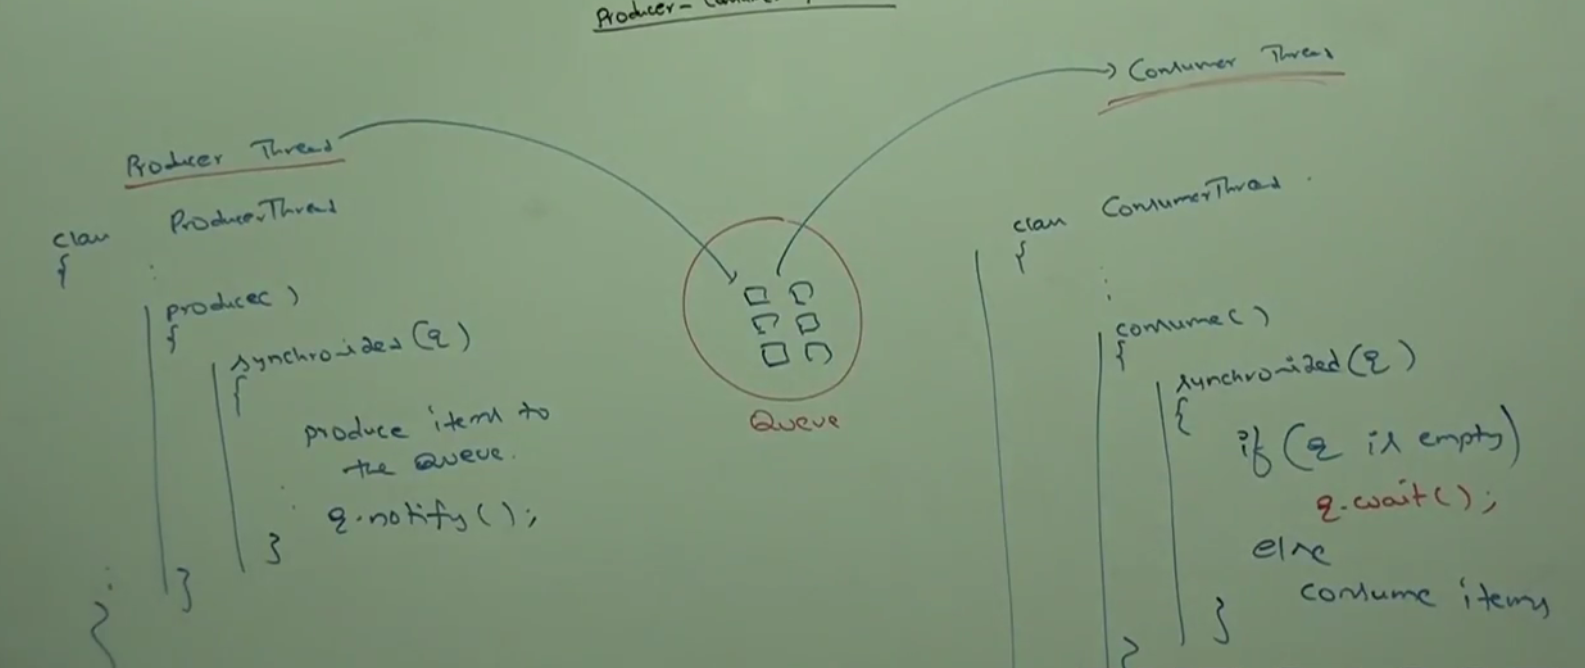 Producer -
Producer Thread
class ProducerThread
{
:
produce()
{
synchronized(q)
{
produce items to
the Queue.
q.notify();
}
}
:
}
Queue
Consumer Thread
class ConsumerThread
{
:
consume()
{
synchronized(q)
{
if (q is empty)
q.wait();
else
consume items
}
}